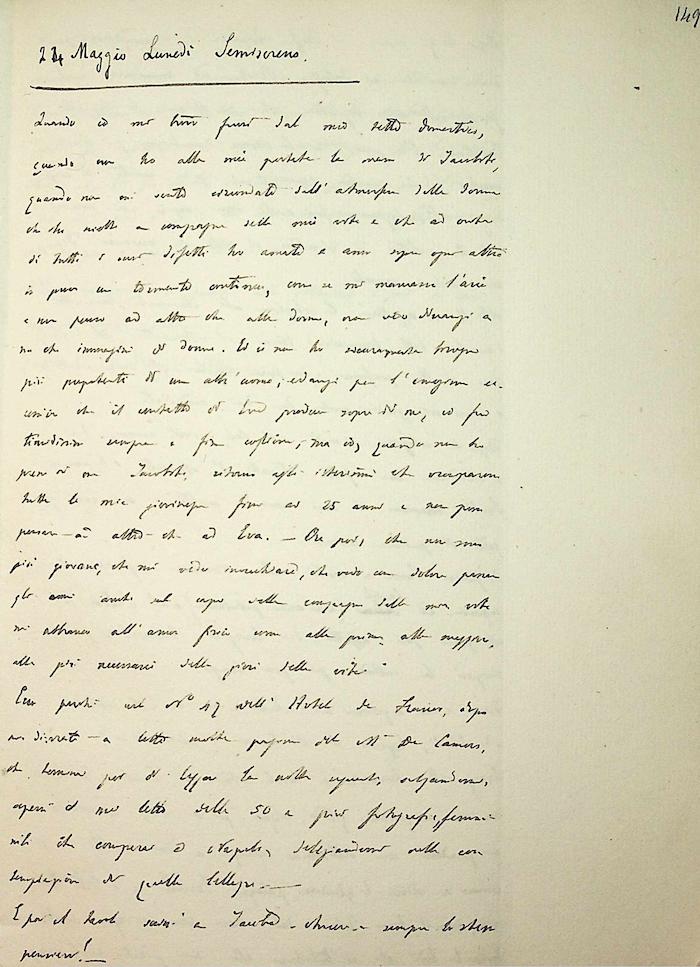 149
24 Maggio Lunedì Semisereno.
Quando io mi trovo fuori dal mio tetto domestico,
quando non ho alla mia portata la mano di Jacobito,
quando non mi sento circondato dall'atmosfera della donna
che ho scelto a compagna della mia vita e che ad onta
di tutti i suoi difetti ho amato e amo sopra ogni altra
io provo un tormento continuo, come se mi mancasse l'aria
e non penso ad altro che alle donne, non vedo dinanzi a
me che immagini di donne. Ed io non ho sicuramente bisogni
più prepotenti di un altr'uomo; ed anzi per l'
che il contatto di Eva produce sopra di me, io fui
timidissimo sempre e ; ma io, quando non ho
presso di me Jacobito, ritorno agli isterismi che occuparono
tutta la mia giovinezza fino ai 25 anni e non posso
pensare ad altro che ad Eva. — Ora poi, che non sono
più giovane, che mi vedo invecchiare, che vedo con dolore passare
gli anni anche sul corpo della compagna della mia vita
mi abbranco all'amor fisico come alla prima, alla maggiore,
alla più necessaria delle gioie della vita.
Ecco perchè nel Nº 17 dell'Hotel de France, dopo
aver divorato a letto molte pagine del Mr De Camors,
che terminai poi di leggere la notte seguente,
apersi il mio letto delle 50 e più fotografie femmi-
nili che comperai a Napoli, nella con-
templazione di quelle bellezze. —
E poi il scrissi a Jacobito - - sempre lo stesso
pensiero! —